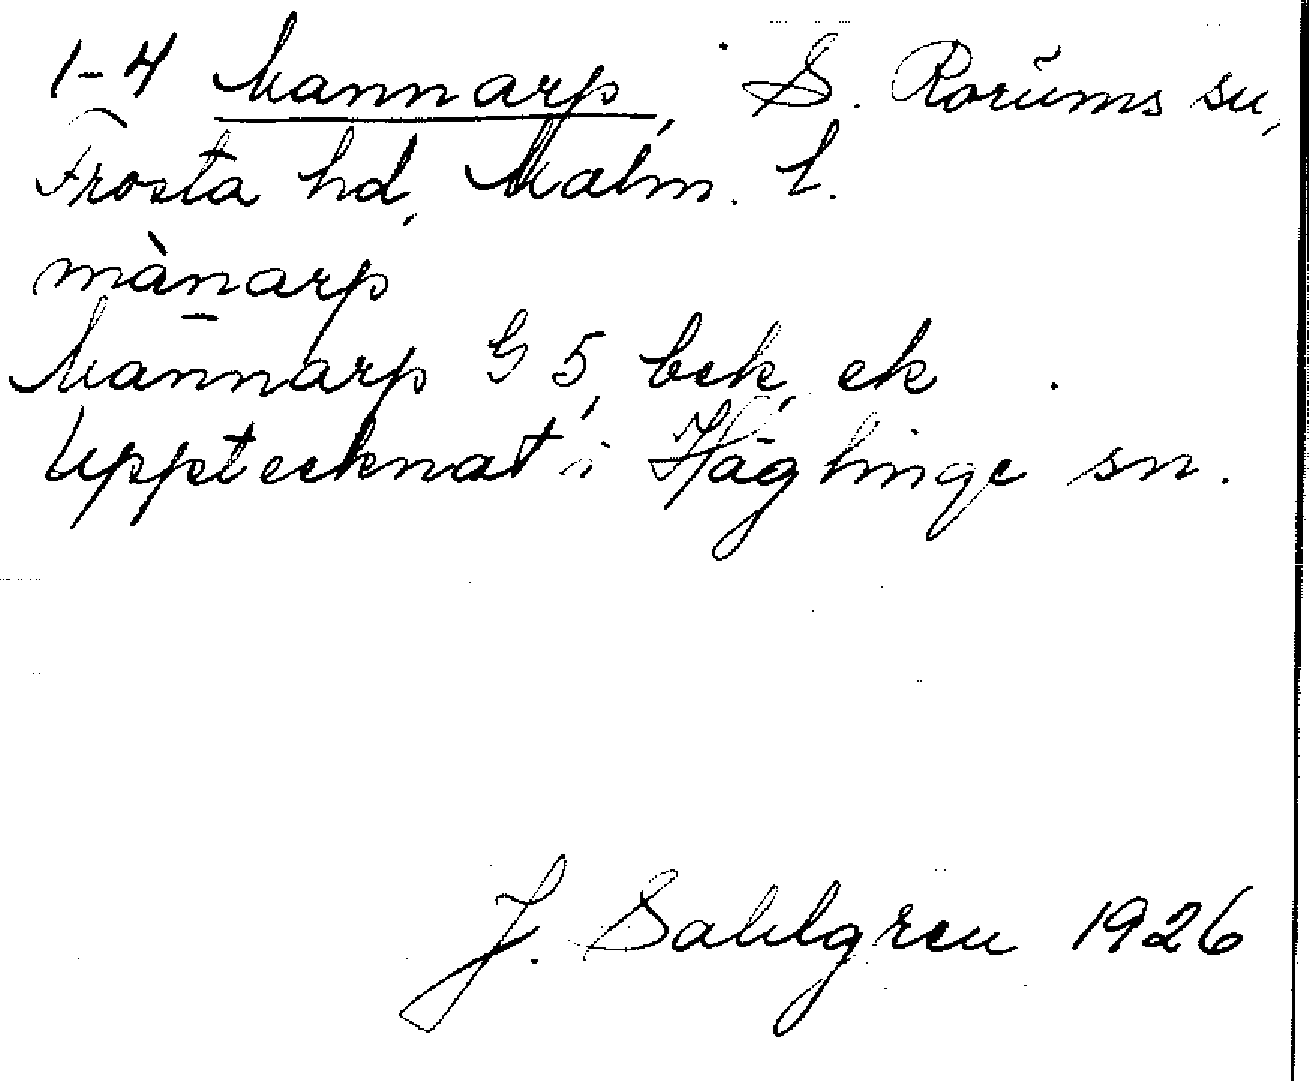 1-4 Mannarp, S. Rorŭms sn,
Frosta hd, Malm. l.
mànarp
Mannarp G 5, bek, ek
Upptecknat i Häglinge sn.
J. Sahlgren 1926